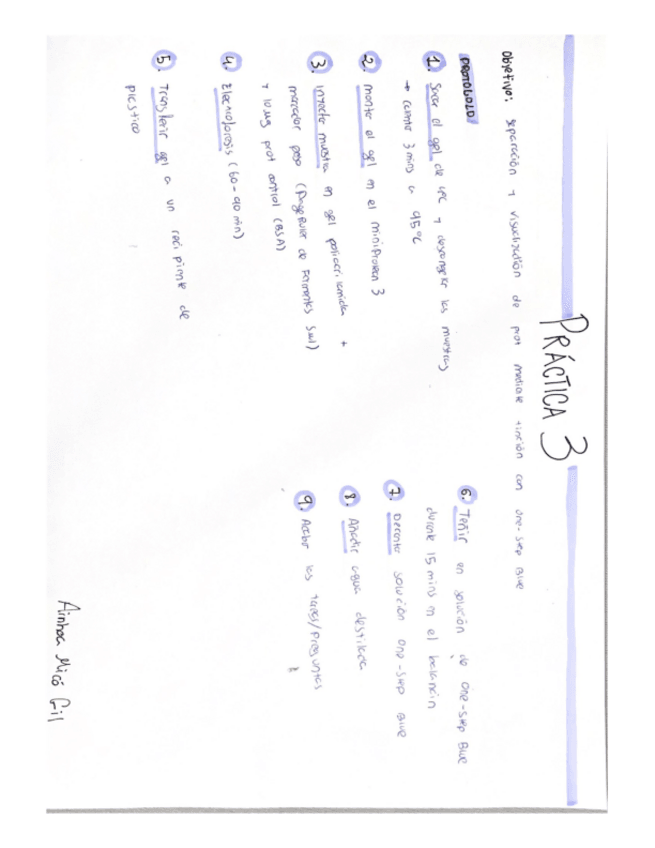 PRÁCTICA 3
Objetivo: separación y visualización de prot mediante tinción con one-step Blue
PROTOCOLO
1. Sacar el gel de 4ºC y descongelar las muestras
→ calentar 3 mins a 95ºC
2. Montar el gel en el miniProtean 3
3. Inyectar muestra en gel poliacrilamida +
marcador peso (PageRuler de Fermentas 5ul)
y 10ug prot control (BSA)
4. Electroforesis (60-90 min)
5. Transferir gel a un recipiente de
plástico
6. Teñir en solución de One-step Blue
durante 15 mins en el balancín
7. Decantar solución One-step Blue
8. Añadir agua destilada
9. Acabar las tareas/preguntas
Ainhoa Micó Gil